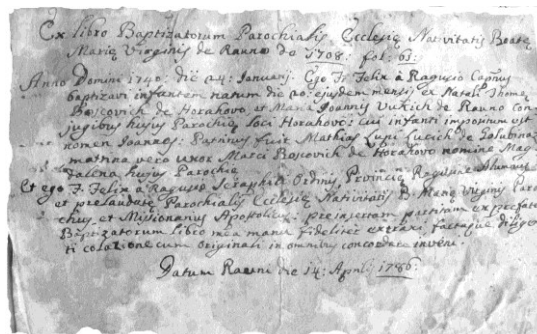 Ex libro Baptizatorum Parochialis Ecclesię Nativitatis Beatę
Marię Virginis de Rauno do 1708: fol: 61:
Anno Domini 1740: die 24: Januarij: Ego Fr Felix à Ragusio
baptizavi infantem natum die 20: ejusdem mensis ex Natali Thomę
Boscovich de Horahovo, et Maria Joannis Vukich de Rauno con
jugibus hujus Parochię loci Horahovo: cui infanti impositum est
nomen Joannes: Patrinus fuit Mathias Luci Lucich de Golubinac
matrina vero uxor Marci Boscovich de Horahovo nomine Mag
dalena hujus Parochię
Et ego F. Felix à Ragusio Seraphici Ordinis, Provincię Ragusinę
et prelaudatę Parochialis Ecclesię Nativitatis B. Marię Virginis Paro
chus, et Missionarius Apostolicus: preinsertam partitam ex prefato
Baptizatorum libro mea manu fideliter extraxi, factaque diligen
ti colazione cum originali in omnibus concordem inveni.
Datum Rauni die 14: Aprilij 1786: